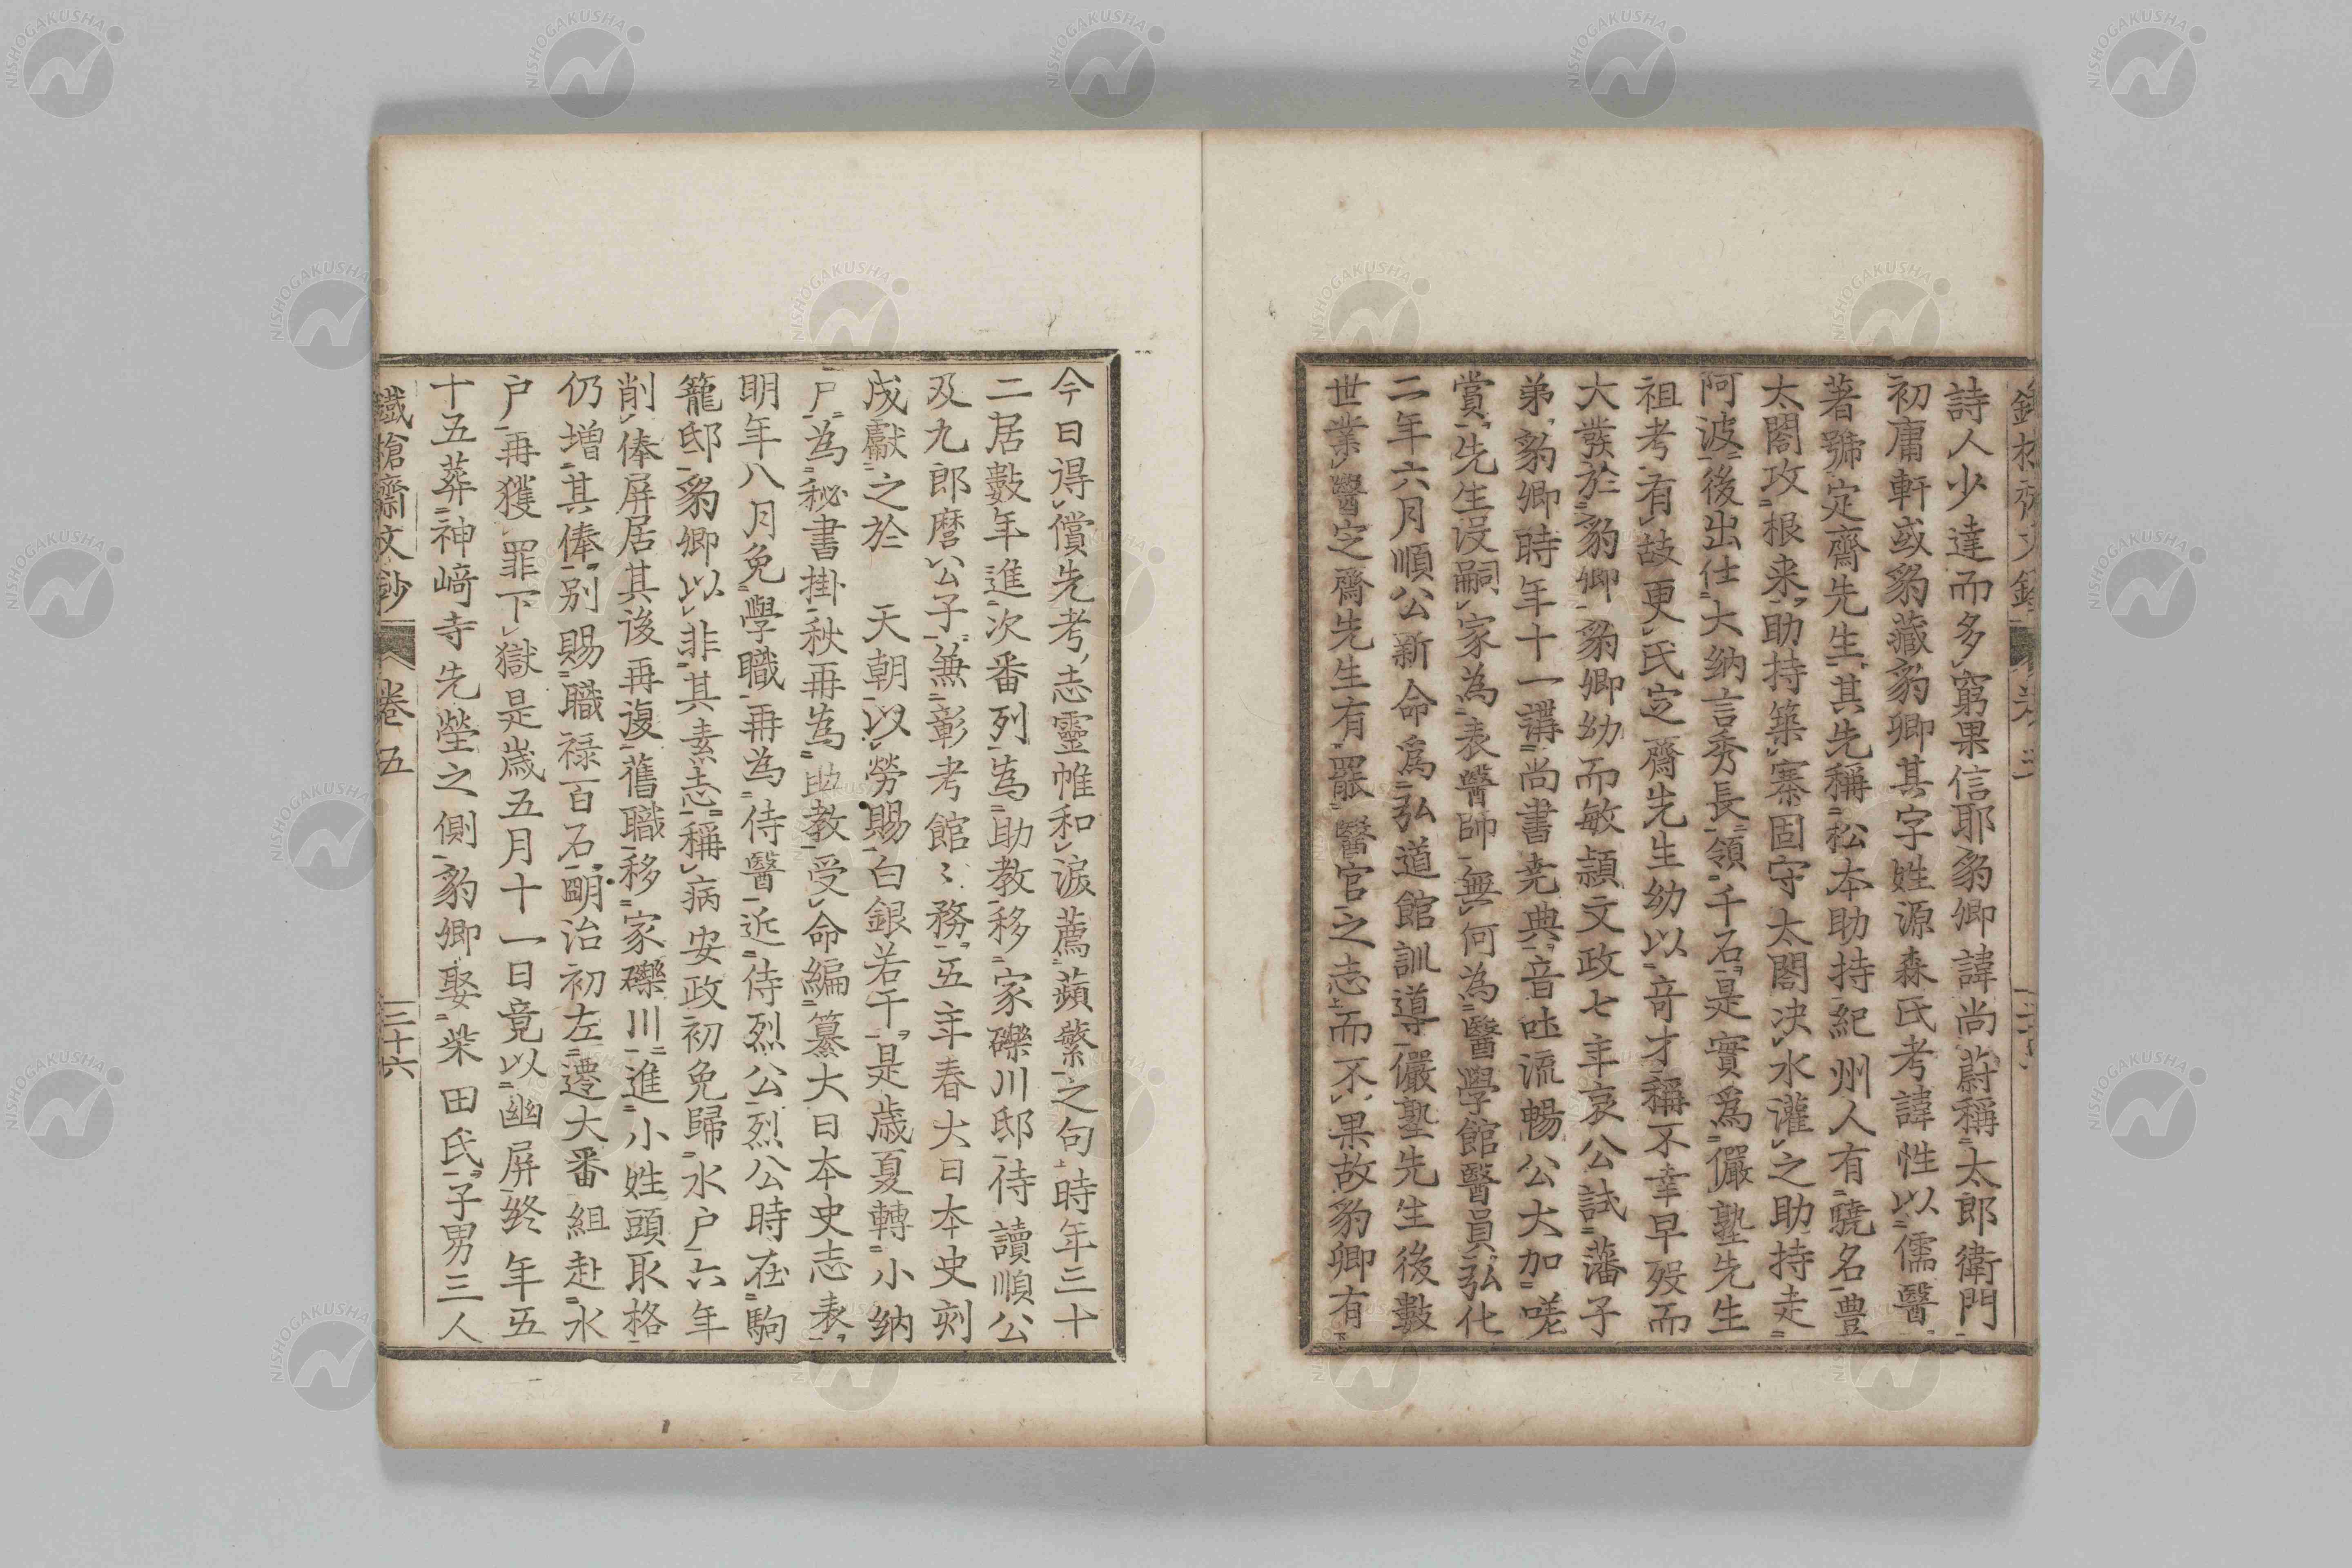 詩人少達而多窮果信耶豹卿諱尚蔚稱太郎衛門
初庸軒或豹藏豹卿其字姓源森氏考諱性以儒醫
著號定齋先生其先稱松本助持紀州人有驍名豊
太閤攻根来助持築寨固守太閤决水灌之助持走
阿波後出仕大納言秀長領千石是實爲儼塾先生
祖考有故更氏定齋先生幼以奇才稱不幸早歿而
大發於豹卿豹卿幼而敏頴文政七年哀公試藩子
弟豹卿時年十一講尚書尭典音吐流暢公大加嗟
賞先生没嗣家為表醫師無何為醫學館醫員弘化
二年六月順公新命爲弘道館訓導儼塾先生後數
世業醫定齋先生有罷醫官之志而不果故豹卿有
今日得償先考志靈帷和淚薦蘋蘩之句時年三十
二居數年進次番列為助教移家礫川邸待讀順公
及九郎麿公子兼彰考館〻務五年春大日本史刻
成獻之於　天朝以勞賜白銀若干是歳夏轉小納
戸為秘書掛秋再為助教受命編纂大日本史志表
明年八月免學職再為侍醫近侍烈公烈公時在駒
籠邸豹卿以非其素志稱病安政初免歸水户六年
削俸屏居其後再復舊職移家礫川進小姓頭取格
仍增其俸別賜職禄百石明治初左遷大番組赴水
户再獲罪下獄是歳五月十一日竟以幽屏終年五
十五葬神﨑寺先塋之側豹卿娶柴田氏子男三人
鐵槍齋文鈔　卷五　三十六
NISHOGAKUSHA